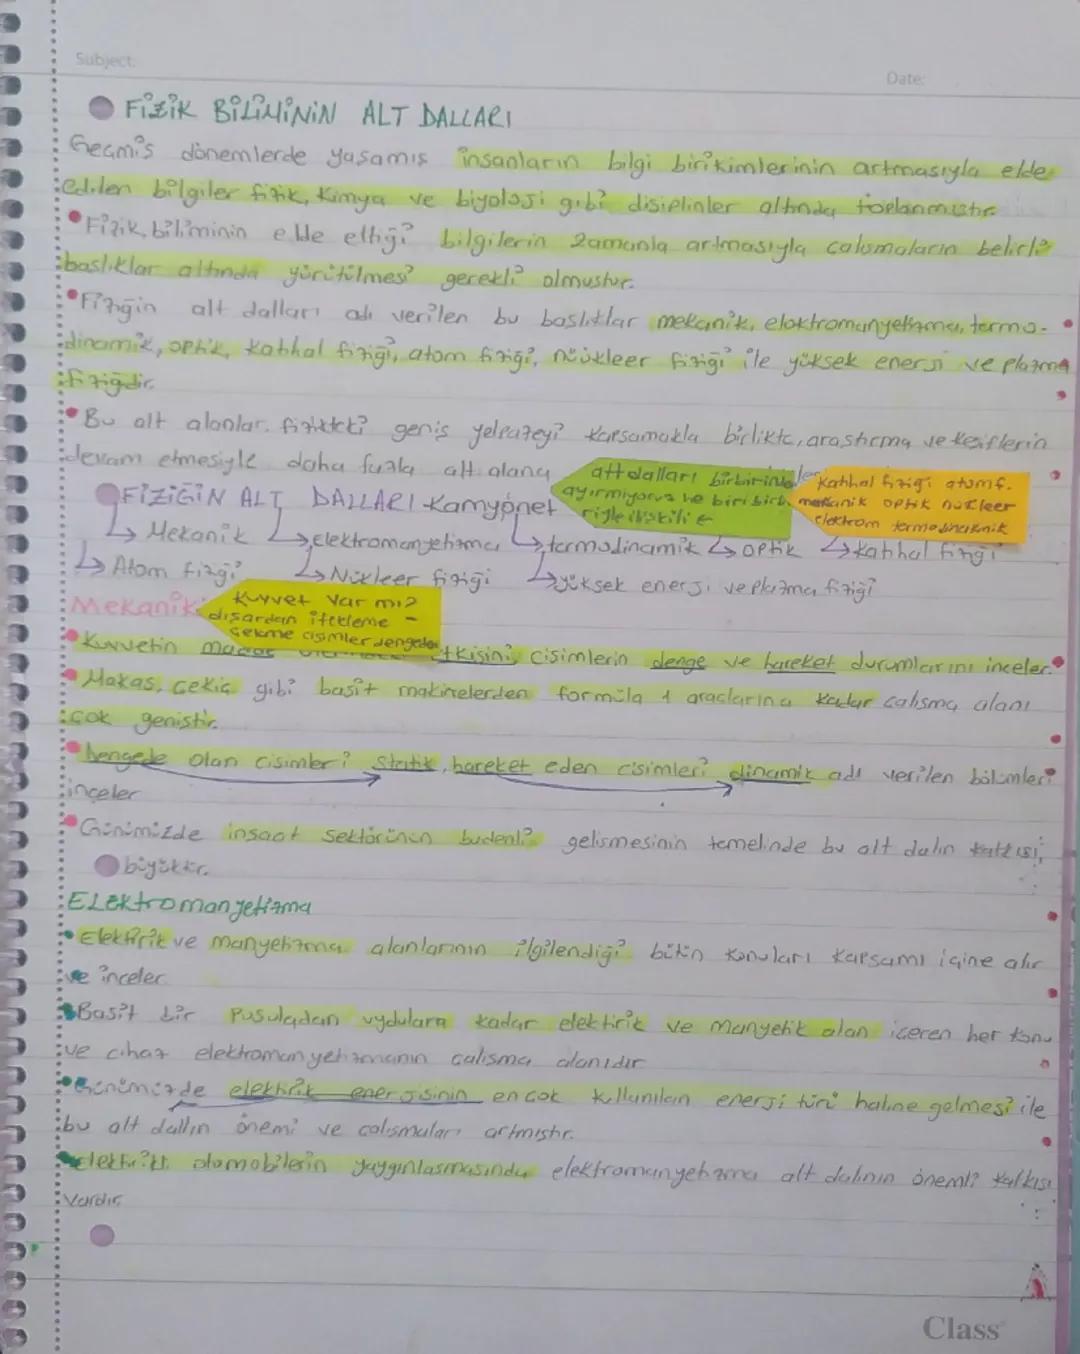 Subject:
Date:
FİZİK BİLİMİNİN ALT DALLARI
Geçmiş dönemlerde yaşamış insanların bilgi birikimlerinin artmasıyla elde
edilen bilgiler fizik, kimya ve biyoloji gibi disiplinler altında toplanmıştır.
• Fizik biliminin elde ettiği bilgilerin zamanla artmasıyla çalışmaların belirli
başlıklar altında yürütülmesi gerekli olmuştur.
• Fiziğin alt dalları adı verilen bu başlıklar mekanik, elektromanyetizma, termo-
dinamik, optik, katıhal fiziği, atom fiziği, nükleer fiziği ile yüksek enerji ve plazma
fiziğidir.
• Bu alt alanlar. fizikteki geniş yelpazeyi kapsamakla birlikte, araştırma ve keşiflerin
devam etmesiyle daha fazla alt alana
alt dalları birbirinden
ayırmıyoruz ve biri birbi
riyle ilişkili
Katıhal fiziği atomf.
mekanik optik nükleer
elektrom termodinamik
FİZİĞİN ALT DALLARI Kamyonet
↳ Mekanik ↳ elektromanyetizma ↳ termodinamik ↳ optik ↳ katıhal fiziği
↳ Atom fiziği ↳ Nükleer fiziği ↳ yüksek enerji ve plazma fiziği
Mekanik:
Kuvvet var mı?
dışardan itekleme -
çekme cisimler dengede
• Kuvvetin madde etkisini, cisimlerin denge ve hareket durumlarını inceler.
• Makas, çekiç gibi basit makinelerden formüla 1 araçlarına kadar çalışma alanı
çok geniştir.
• Dengede olan cisimleri statik, hareket eden cisimleri dinamik adı verilen bölümleri
inceler
• Günümüzde inşaat sektörünün budenli gelişmesinin temelinde bu alt dalın katkısı
büyüktür.
Elektromanyetizma
• Elektirik ve manyetizma alanlarının ilgilendiği bütün konuları kapsamı içine alır
ve inceler
• Basit bir pusuladan uydulara kadar elektirik ve manyetik alan içeren her konu
ve cihaz elektromanyetizmanın çalışma alanıdır
• Günümüzde elektirik enerjisinin en çok kullanılan enerji türü haline gelmesi ile
bu alt dallın önemi ve çalışmaları artmıştır.
• elektirikli otomobilerin yaygınlaşmasında elektromanyetizma alt dalının önemli katkısı
vardır.
Class